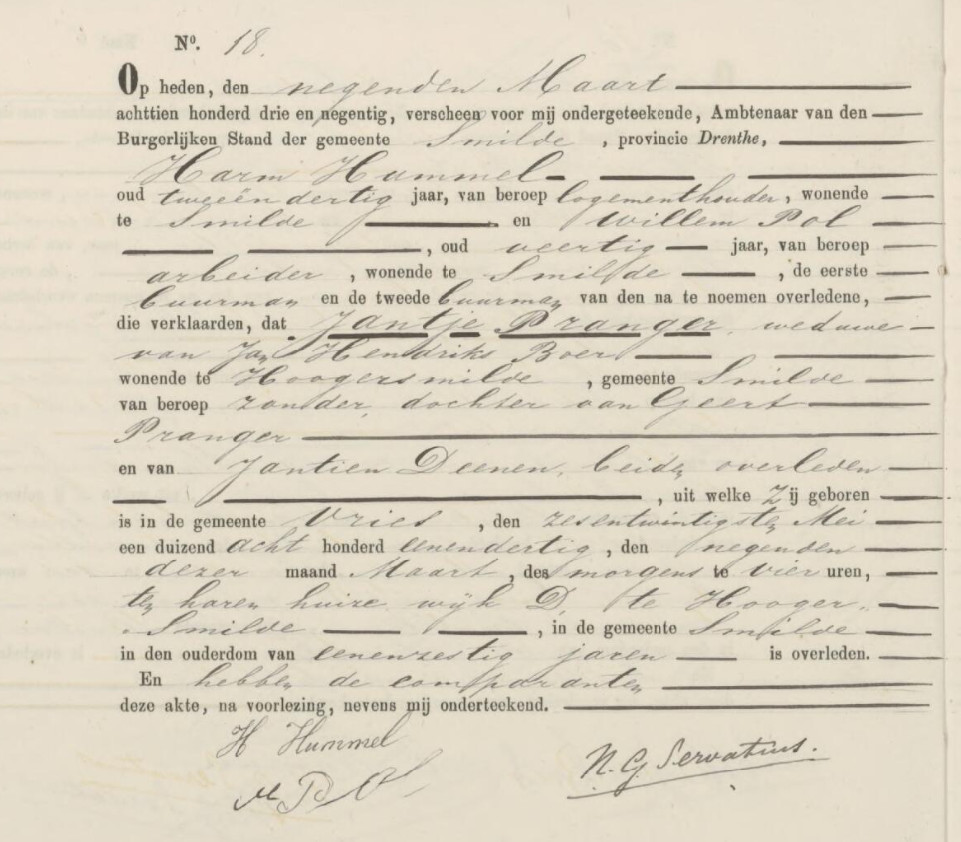 No. 18.
Op heden, den negenden Maart
achttien honderd drie en negentig, verscheen voor mij ondergeteekende, Ambtenaar van den
Burgerlijken Stand der gemeente Smilde, provincie Drenthe,
Harm Hummel
oud tweeëndertig jaar, van beroep logementhouder, wonende
te Smilde en Willem Pol
, oud veertig jaar, van beroep
arbeider, wonende te Smilde, de eerste
buurman en de tweede buurman van den na te noemen overledene,
die verklaarden, dat Jantje Pranger, weduwe
van Jan Hendriks Boer
wonende te Hoogersmilde, gemeente Smilde
van beroep zonder, dochter van Geert
Pranger
en van Jantien Deenen, beiden overleden
, uit welke Zij geboren
is in de gemeente Vries, den zesentwintigsten Mei
een duizend acht honderd eenendertig, den negenden
dezer maand Maart, des morgens te vier uren,
ten haren huize wijk D, te Hooger-
Smilde, in de gemeente Smilde
in den ouderdom van eenenzestig jaren is overleden.
En hebben de comparanten
deze akte, na voorlezing, nevens mij onderteekend.
H Hummel
W Pol
N. G. Servatius.